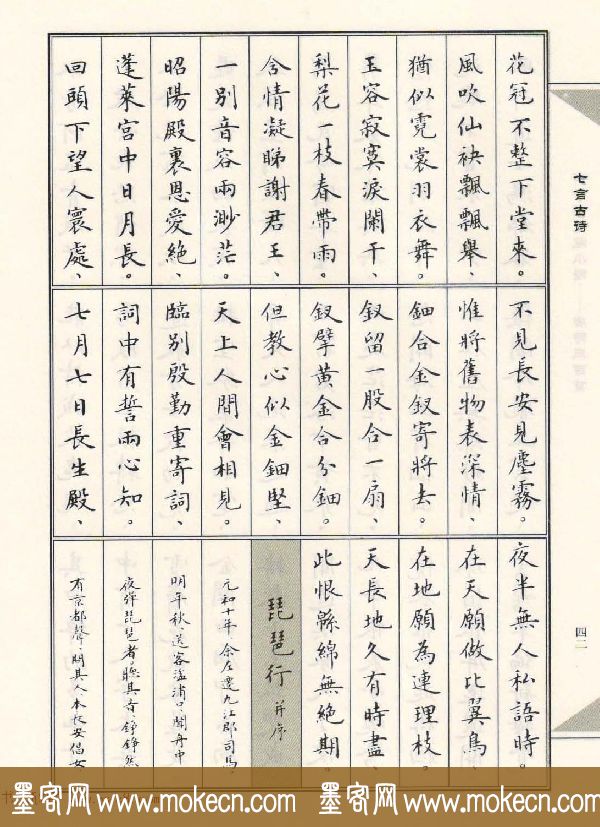 七言古詩
花冠不整下堂來。
風吹仙袂飄飄舉、
猶似霓裳羽衣舞。
玉容寂寞淚闌干、
梨花一枝春帶雨。
含情凝睇謝君王、
一別音容兩渺茫。
昭陽殿裏恩愛絕、
蓬萊宮中日月長。
回頭下望人寰處、
不見長安見塵霧。
惟將舊物表深情、
鈿合金釵寄將去。
釵留一股合一扇、
釵擘黃金合分鈿。
但教心似金鈿堅、
天上人間會相見。
臨別殷勤重寄詞、
詞中有誓兩心知。
七月七日長生殿、
夜半無人私語時。
在天願做比翼鳥
在地願為連理枝。
天長地久有時盡、
此恨緜綿無絕期。
琵琶行 并序
元和十年余左遷九江郡司馬。
明年秋送客湓浦口、聞舟中
夜彈琵琶者。聽其音、錚錚然
有京都聲、問其人本長安倡女
四一
墨客网 www.mokecn.com 墨客网 www.mokecn.com